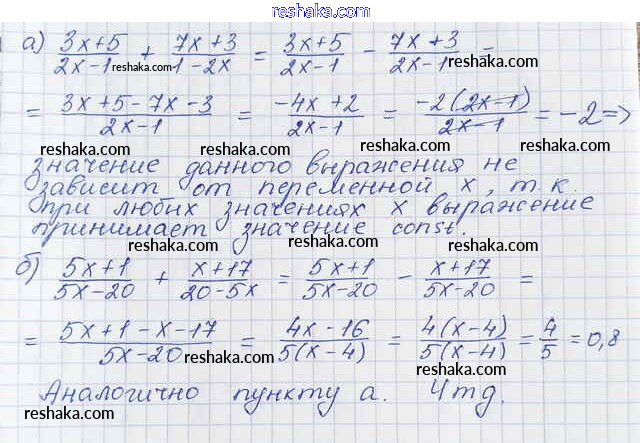 reshaka.com
а) 3x+5/2x-1 + 7x+3/1-2x = 3x+5/2x-1 - 7x+3/2x-1 =
reshaka.com reshaka.com
= 3x+5-7x-3/2x-1 = -4x+2/2x-1 = -2(2x-1)/2x-1 = -2 =>
reshaka.com reshaka.com reshaka.com
значение данного выражения не
зависит от переменной x, т.к.
reshaka.com reshaka.com
при любых значениях x выражение
принимает значение const.
reshaka.com reshaka.com
б) 5x+1/5x-20 + x+17/20-5x = 5x+1/5x-20 - x+17/5x-20 =
reshaka.com reshaka.com
= 5x+1-x-17/5x-20 = 4x-16/5(x-4) = 4(x-4)/5(x-4) = 4/5 = 0,8
reshaka.com reshaka.com
Аналогично пункту а. Чтд.
reshaka.com reshaka.com